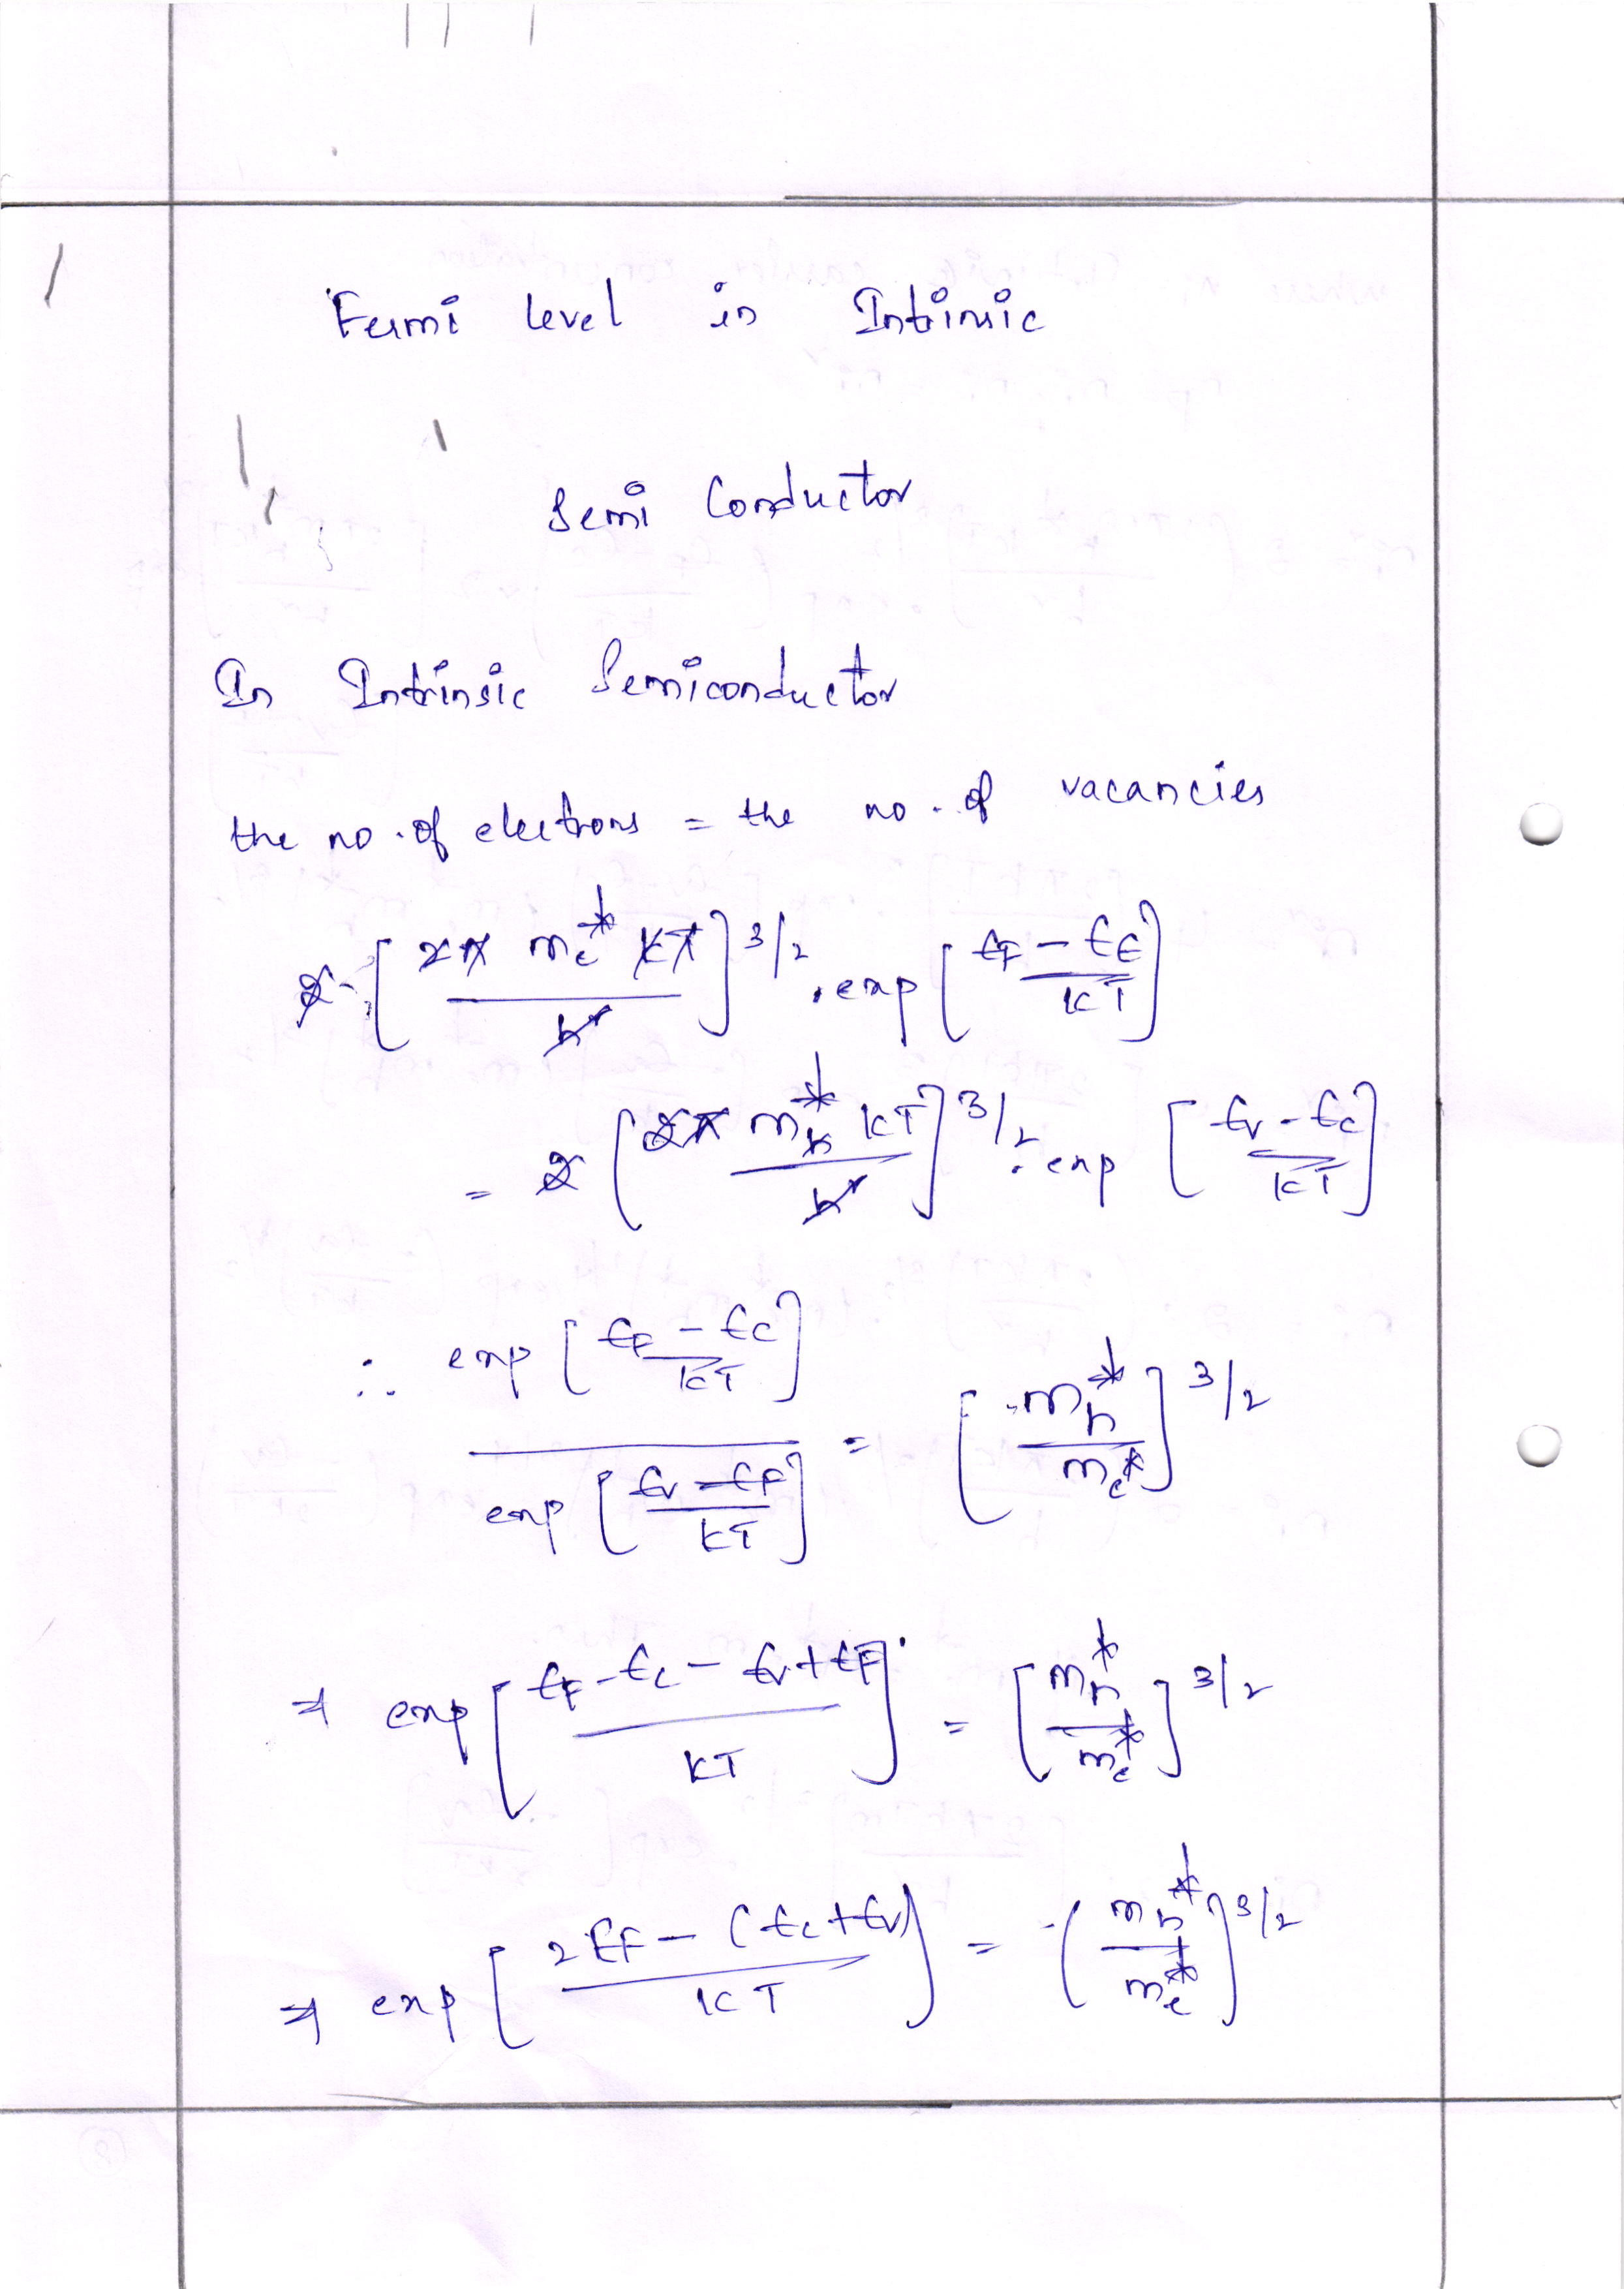 Fermi level in Intrinsic
Semi Conductor
In Intrinsic Semiconductor
the no. of electrons = the no. of vacancies
2 · [ 2π m_e^* kT / h² ]^3/2 . exp [ E_F - E_C / kT ]
= 2 [ 2π m_h^* kT / h² ]^3/2 . exp [ E_v - E_C / kT ]
∴ exp [ E_F - E_C / kT ] / exp [ E_v - E_F / kT ] = [ m_h^* / m_e^* ]^3/2
⇒ exp [ E_F - E_C - E_v + E_F / kT ] = [ m_h^* / m_e^* ]^3/2
⇒ exp [ 2E_F - (E_C + E_v) / kT ] = ( m_h^* / m_e^* ]^3/2